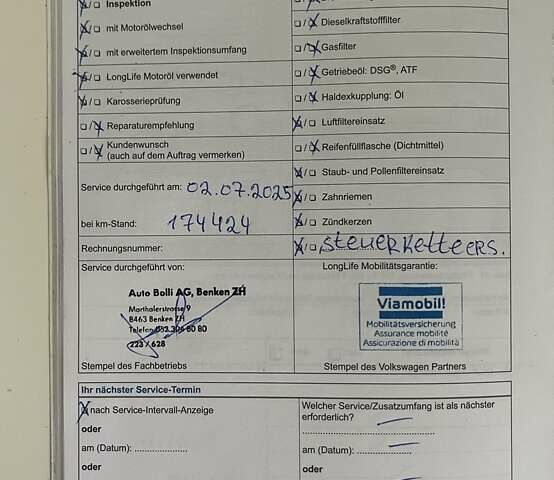 ☒/☐ Inspektion
☒/☐ mit Motorölwechsel
☒/☐ mit erweitertem Inspektionsumfang
☒/☐ LongLife Motoröl verwendet
☒/☐ Karosserieprüfung
☐/☒ Reparaturempfehlung
☐/☒ Kundenwunsch
(auch auf dem Auftrag vermerken)
Service durchgeführt am: 02.07.2025
bei km-Stand: 174424
Rechnungsnummer:
Service durchgeführt von:
Auto Bolli AG, Benken ZH
Marthalerstrasse 9
8463 Benken ZH
Telefon 052 305 60 80
223 / 628
Stempel des Fachbetriebs
☐/☒ Dieselkraftstofffilter
☐/☒ Gasfilter
☐/☒ Getriebeöl: DSG®, ATF
☐/☒ Haldexkupplung: Öl
☒/☐ Luftfiltereinsatz
☐/☒ Reifenfüllflasche (Dichtmittel)
☒/☐ Staub- und Pollenfiltereinsatz
☒/☐ Zahnriemen
☒/☐ Zündkerzen
☒/☐ Steuerketteers.
LongLife Mobilitätsgarantie:
Viamobil!
Mobilitätsversicherung
Assurance mobilité
Assicurazione di mobilità
Stempel des Volkswagen Partners
Ihr nächster Service-Termin
☒ nach Service-Intervall-Anzeige
oder
am (Datum): ....................
oder
Welcher Service/Zusatzumfang ist als nächster
erforderlich?
..................................................
am (Datum): ....................
oder